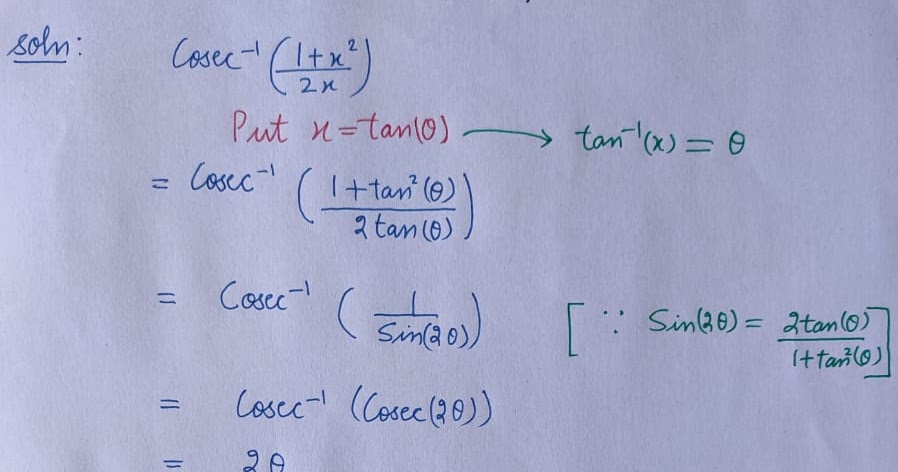 soln: Cosec⁻¹ ((1+x²)/(2x))
Put x = tan(θ) ⟶ tan⁻¹(x) = θ
= Cosec⁻¹ ((1+tan²(θ))/(2tan(θ)))
= Cosec⁻¹ (1/Sin(2θ)) [∵ Sin(2θ) = (2tan(θ))/(1+tan²(θ))]
= Cosec⁻¹ (Cosec(2θ))
= 2θ